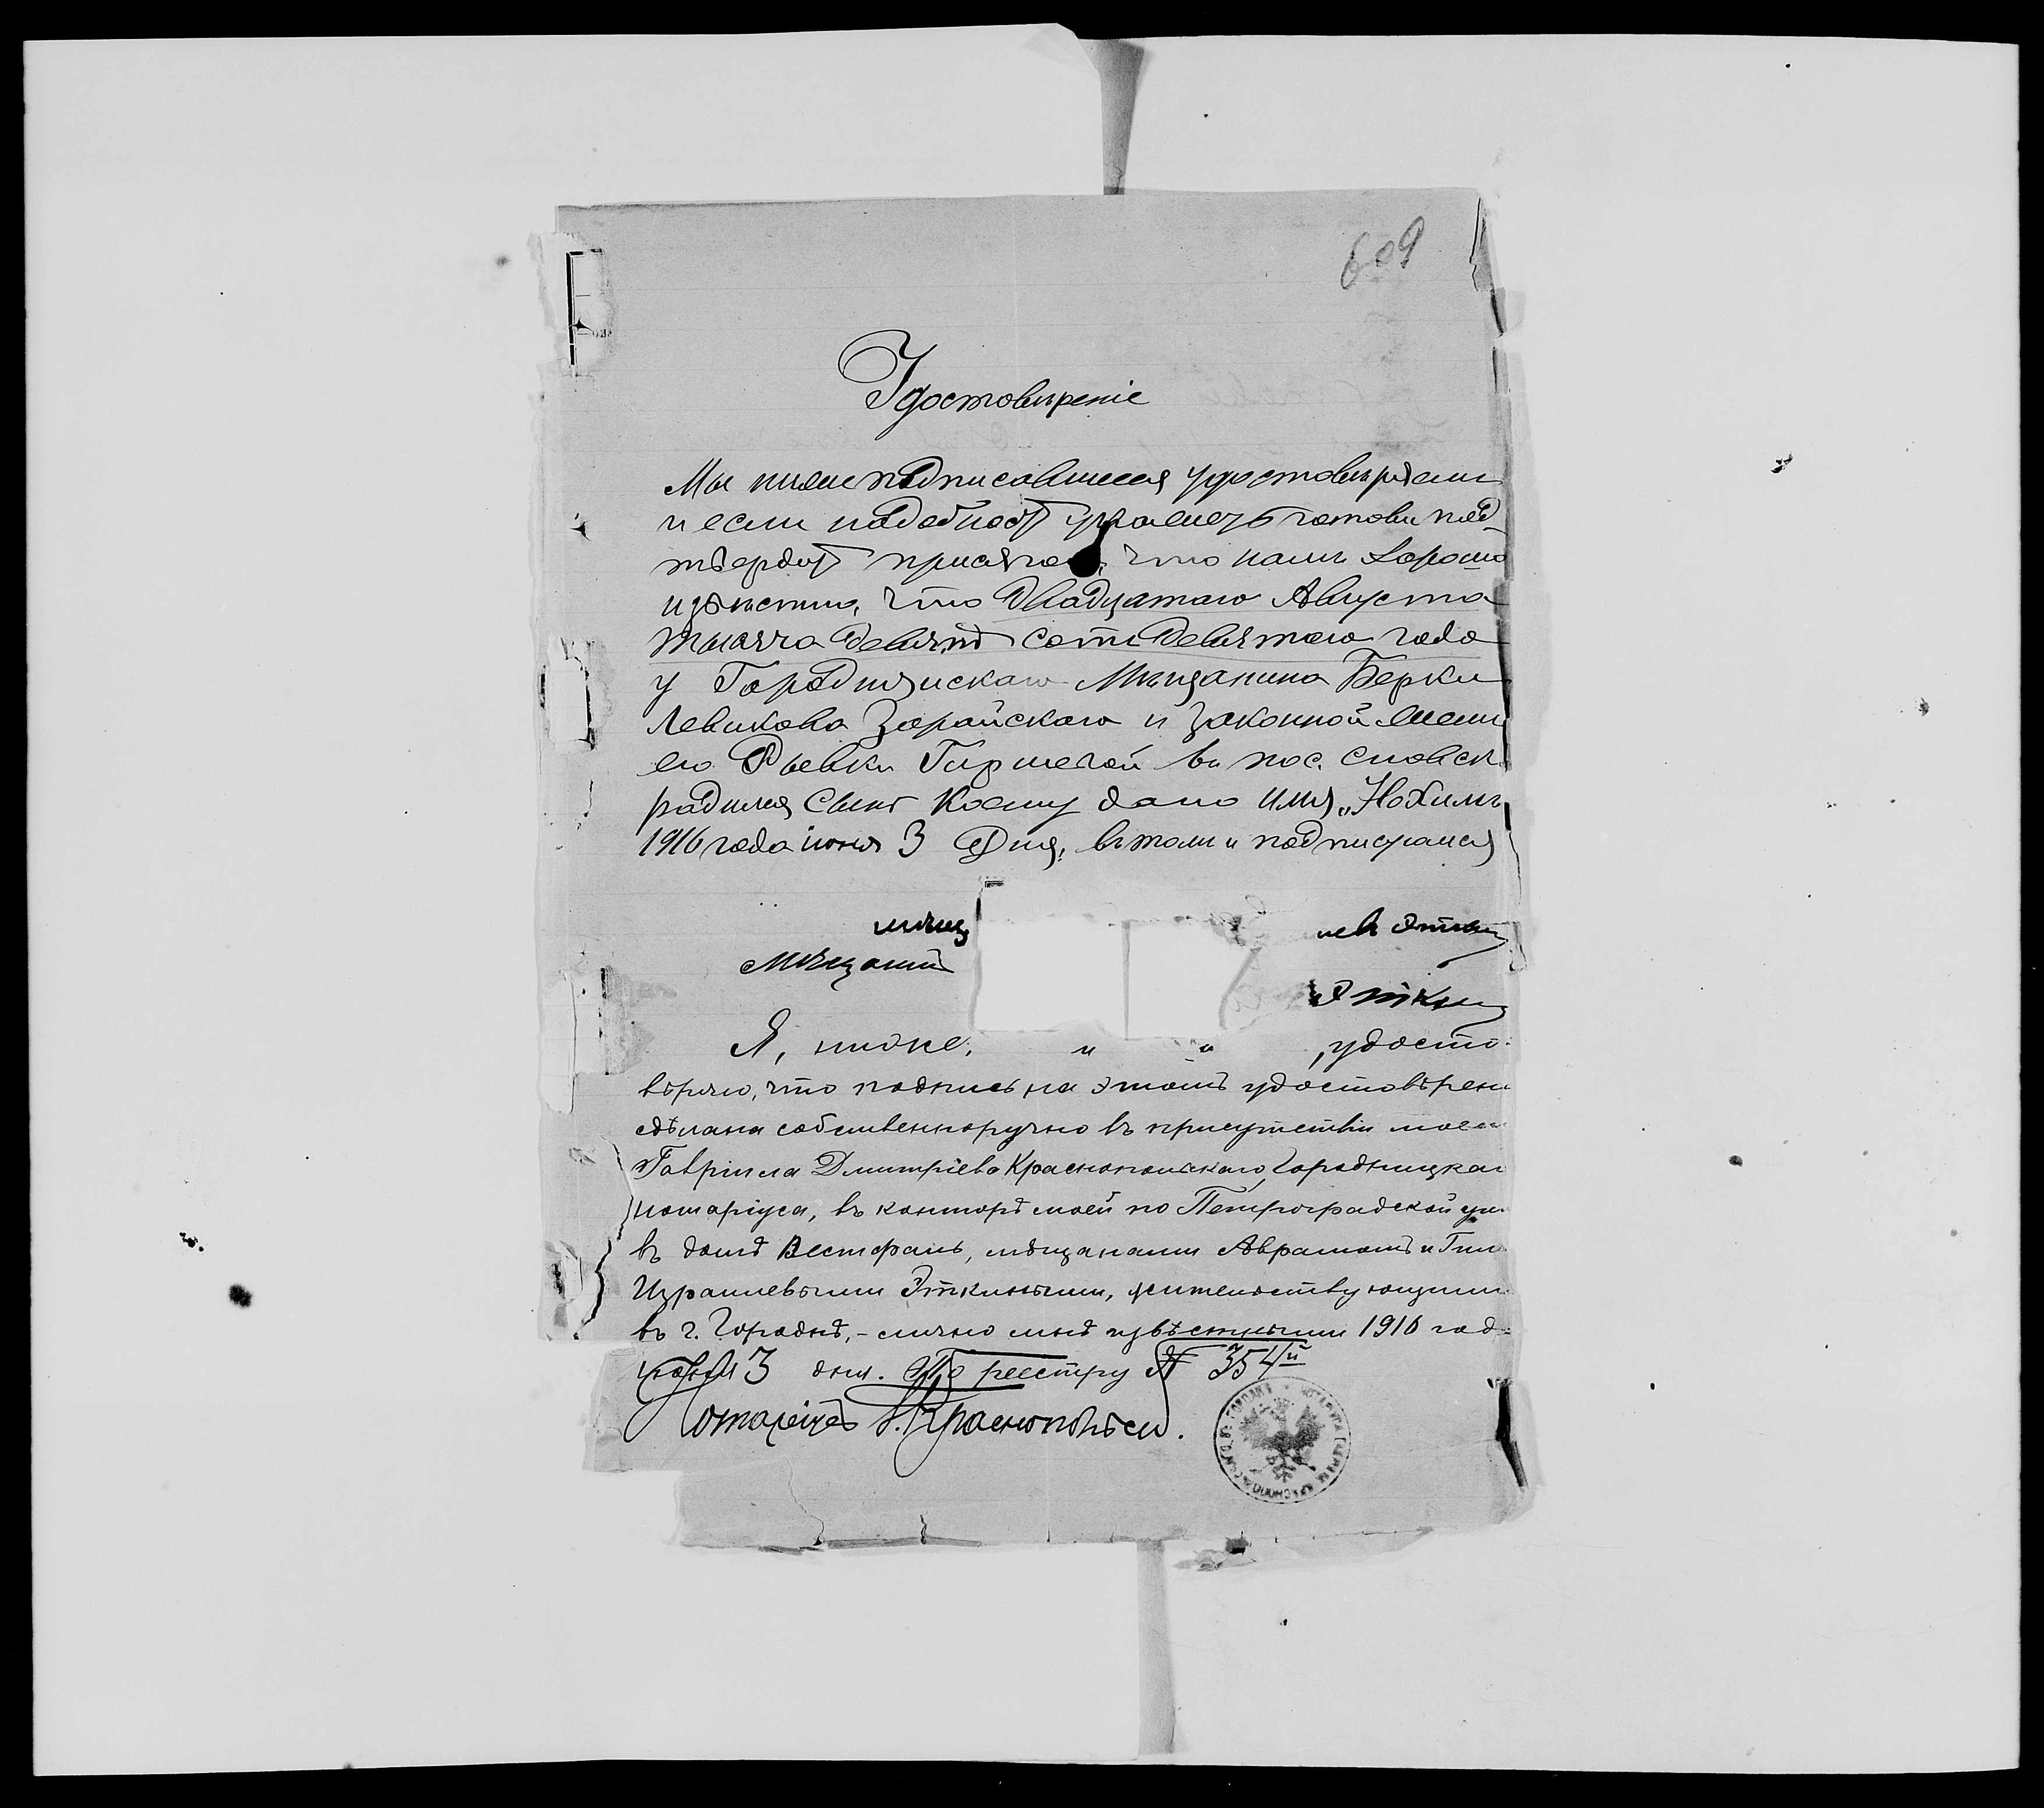 609
Удостовѣреніе
Мы ниже подписавшиеся удостовѣряем
и если надобность укажетъ готовы под-
твердить присягою, что намъ хорошо
извѣстно, что двадцатаго Августа
тысяча девять сотъ девятаго года
у Городнянскаго Мѣщанина Берки
Левикова Зарайскаго и законной жены
его Рывки Гиршевой въ пос. Сновск
родился сынъ коему дано имя „Нохимъ
1916 года іюня 3 Дня, въ томъ и подписуемся
мѣщ
левъ Эткин
Мѣщанинъ
Эткин
Я, ниже, " " , удосто-
вѣряю, что подпись на этомъ удостовѣрен
сдѣлана собственноручно въ присутствіи моем
Гавріила Дмитріева Краснопольскаго, Городницкаг
нотаріуса, въ конторѣ моей по Петроградской ул.
въ домѣ Вестфаль, мѣщанами Аврамомъ и Гил
Израилевыми Эткиными, жительствующими
въ г. Городнѣ, - лично мнѣ извѣстными 1916 год-
іюня 3 дня. По реестру № 354й
Нотаріусъ Г. Краснопольск.